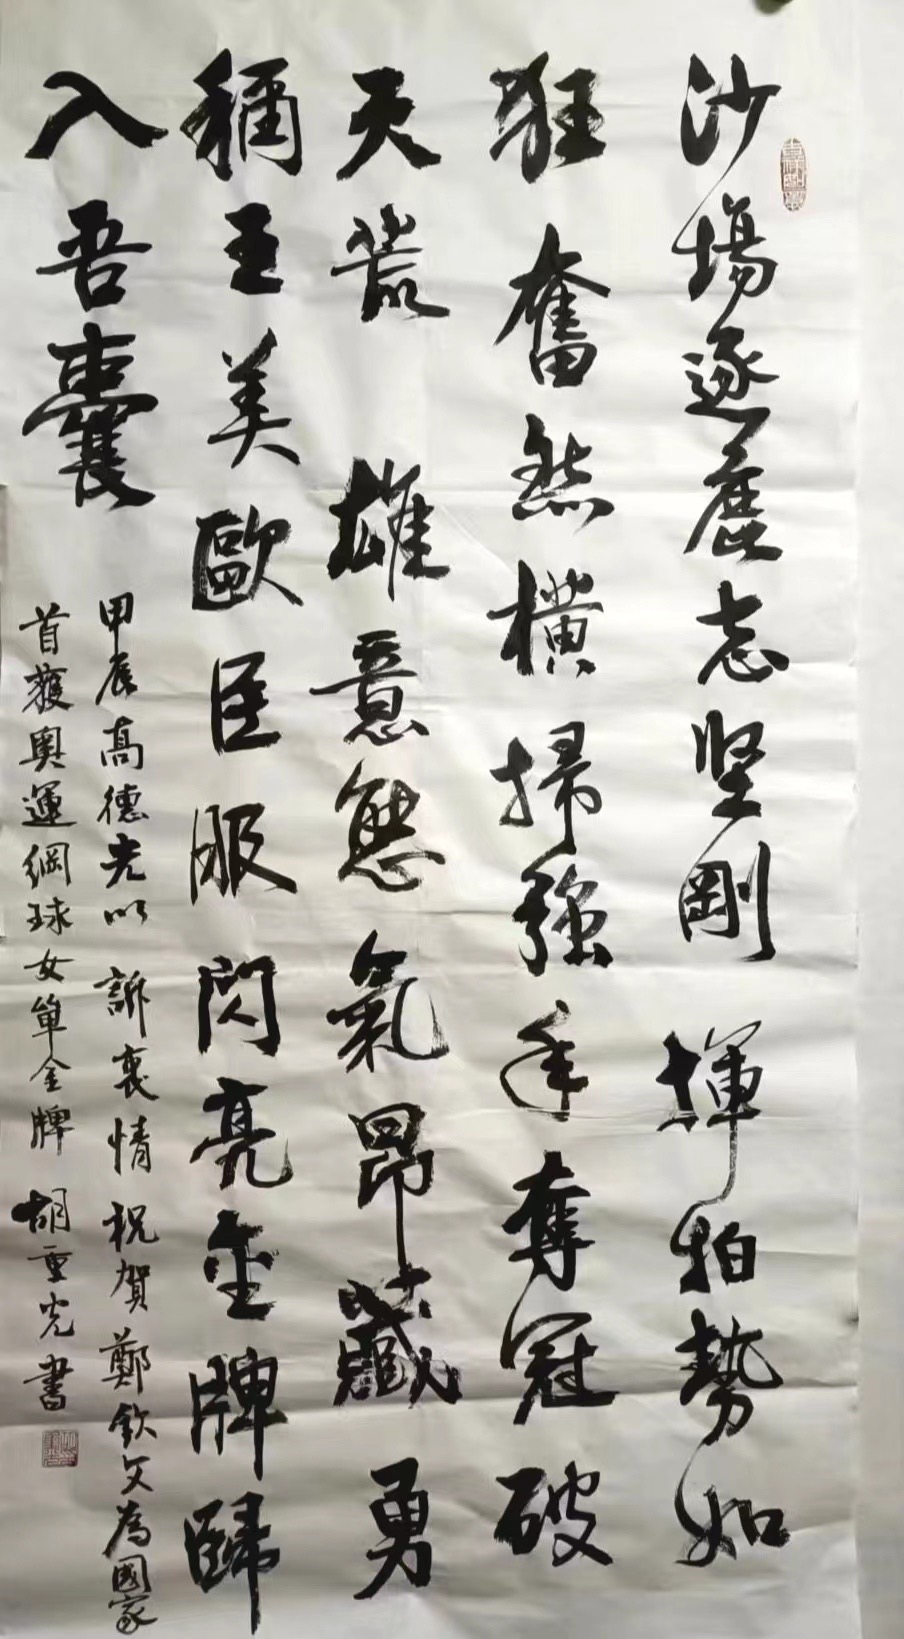 沙場逐鹿志坚剛 揮拍勢如
狂 奮然橫掃強手奪冠破
天荒 雄意態氣昂藏 勇
稱王美歐臣服閃亮金牌歸
入吾囊
甲辰高德光以 訴衷情 祝賀鄭欽文為國家
首獲奧運網球女單金牌 胡重光書